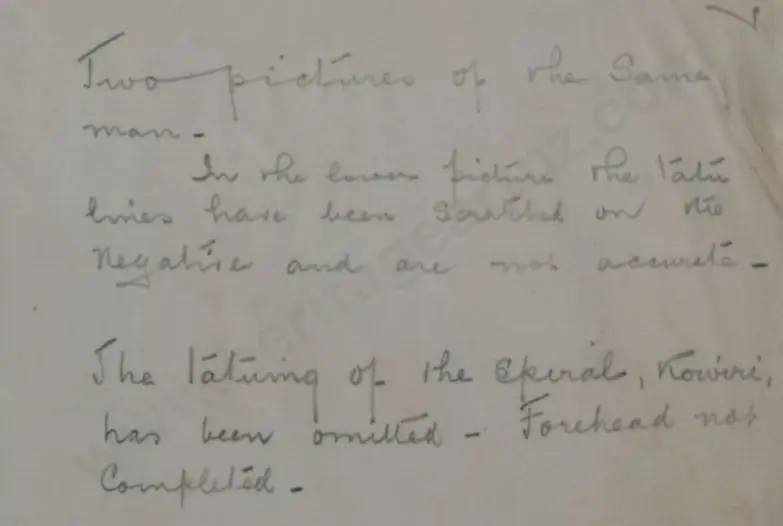 Two pictures of the Same
man -
In the lower picture the tatu
lines have been Scratched on the
Negative and are not accurate -
The tatuing of the Spiral, Kowiri,
has been omitted - Forehead not
Completed -